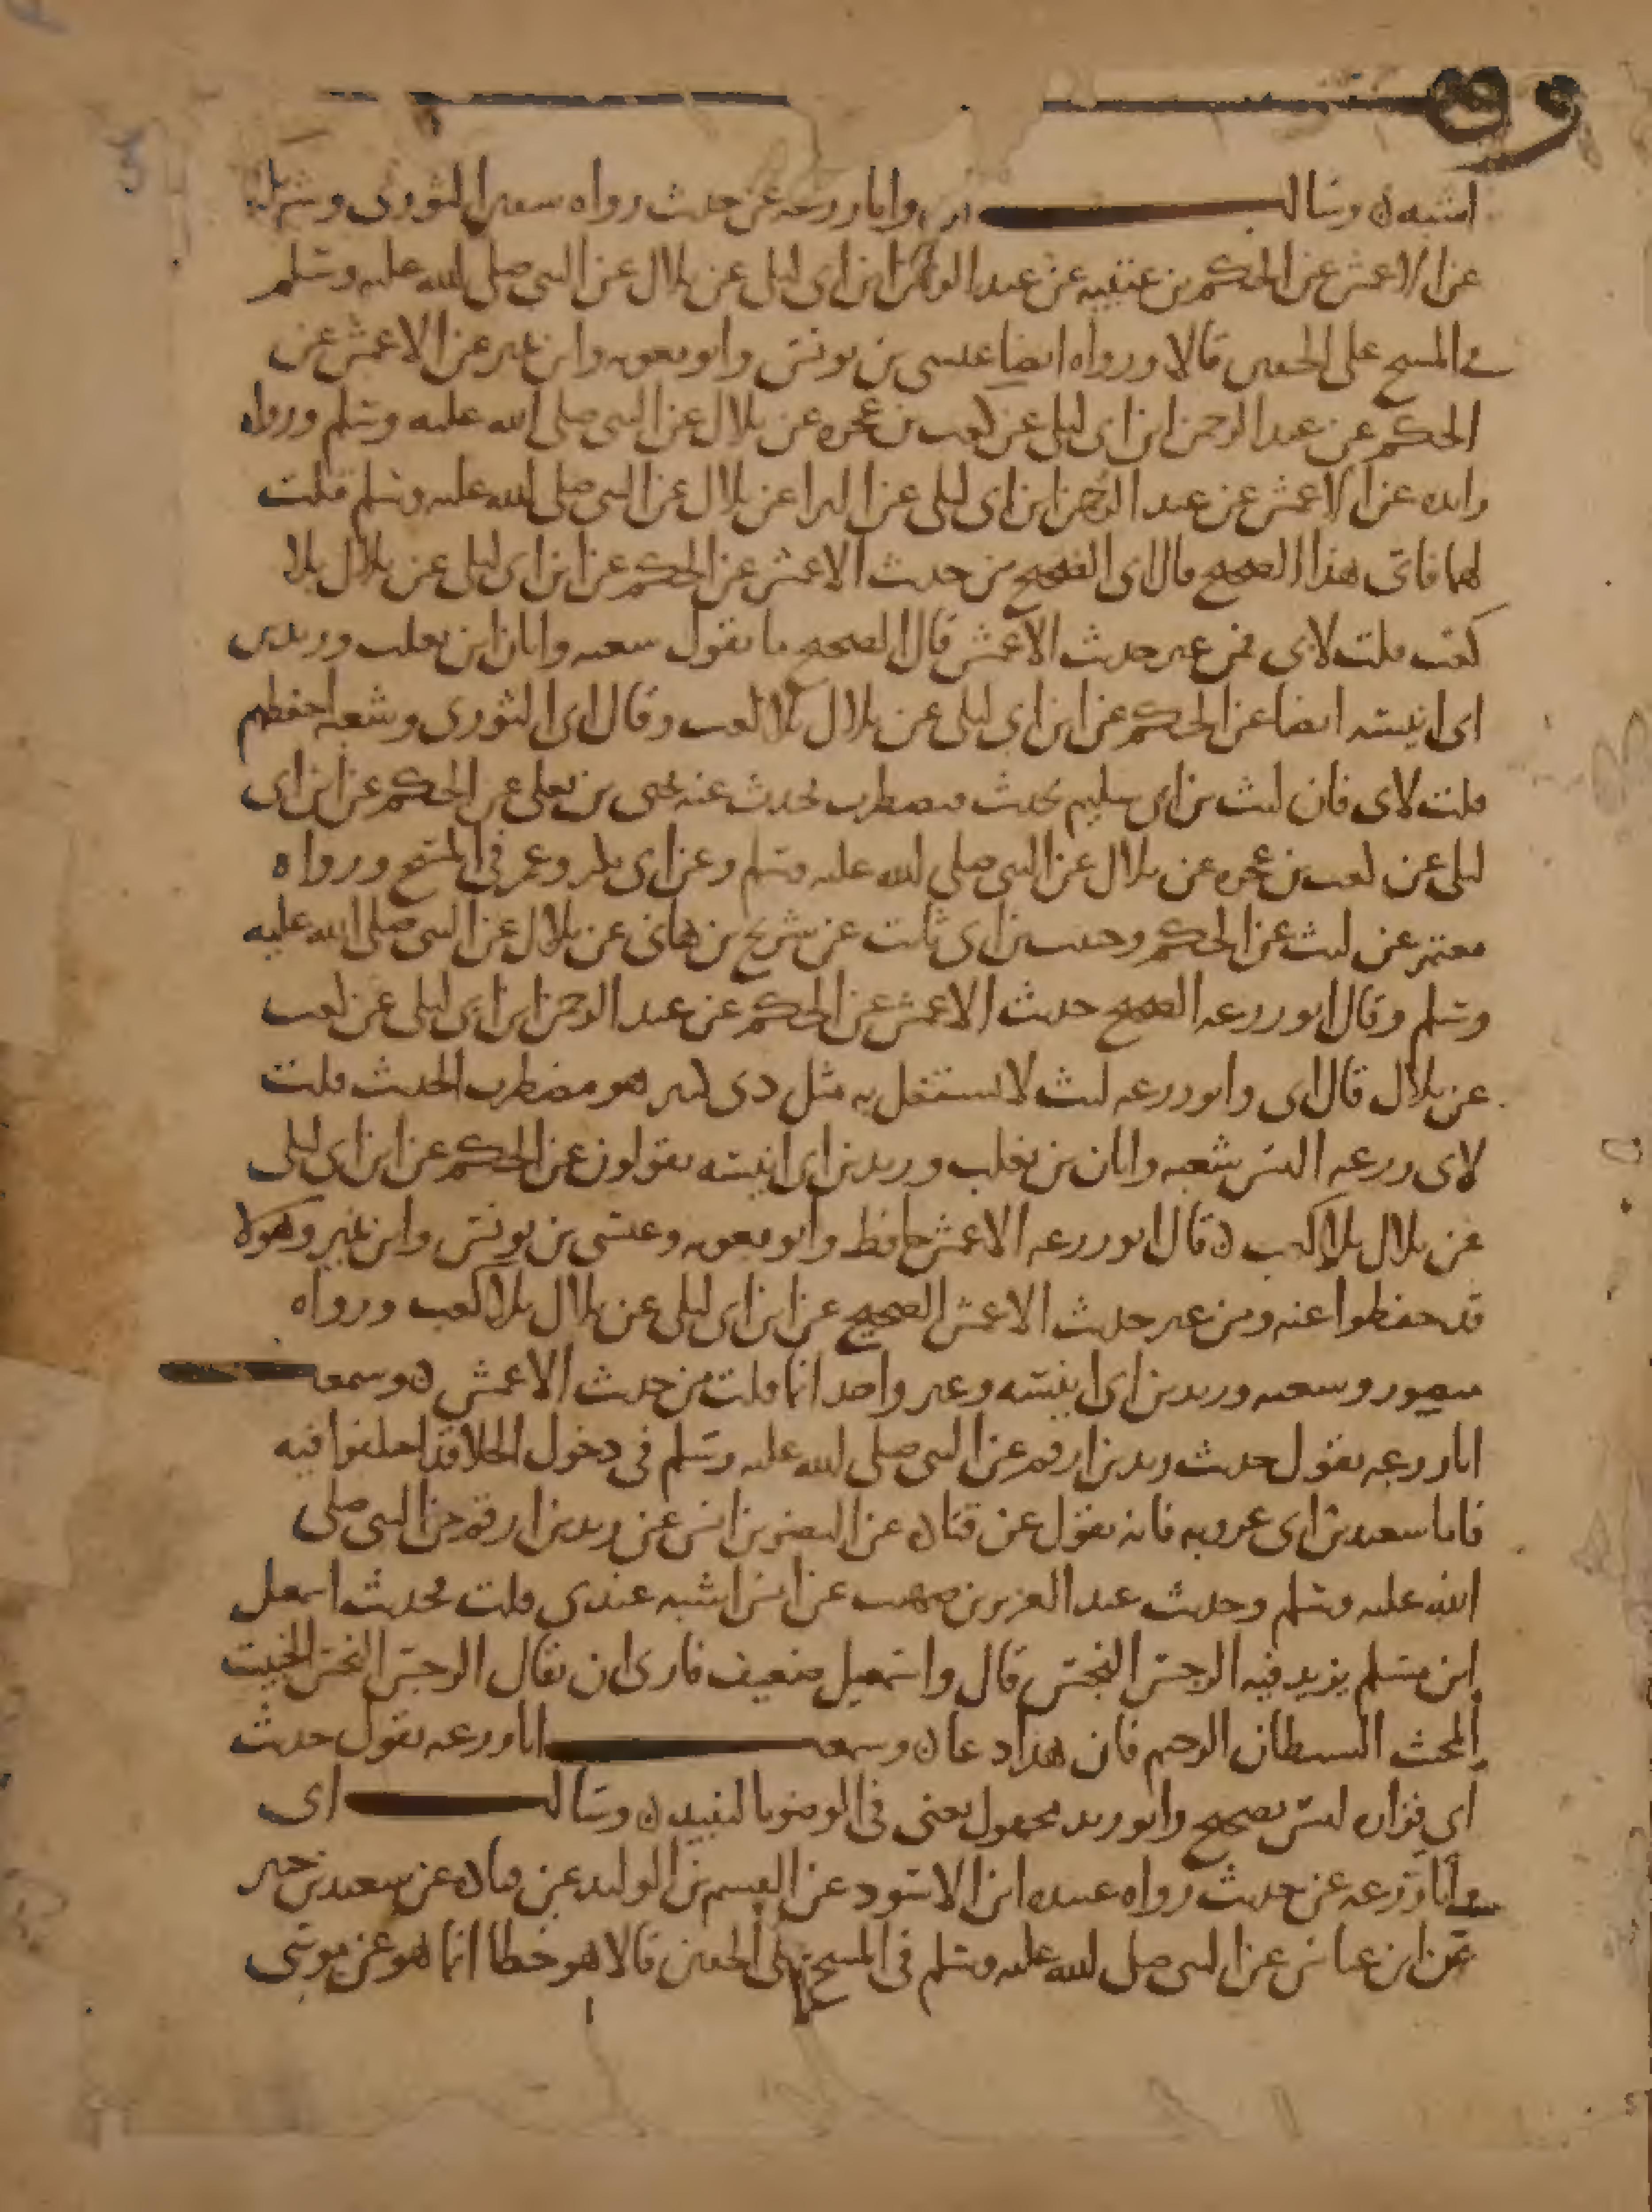 وقف
اشبه ه وسالت ابي وابا زرعه عن حديث رواه سفين الثوري وشريك
عن الاعمش عن الحكم بن عتيبه عن عبد الرحمن ابن ابي ليلى عن بلال عن النبي صلى الله عليه وسلم
في المسح على الخفين قالا ورواه ايضا عيسى بن يونس وابو معويه وابن نمير عن الاعمش عن
الحكم عن عبد الرحمن ابن ابي ليلى عن كعب بن عجره عن بلال عن النبي صلى الله عليه وسلم ورواه
زايده عن الاعمش عن عبد الرحمن ابن ابي ليلى عن البرا عن بلال عن النبي صلى الله عليه وسلم قلت
لهما فاي هذا الصحيح قال ابي الصحيح من حديث الاعمش عن الحكم عن ابن ابي ليلى عن بلال بلا
كعب قلت لابي فمن غير حديث الاعمش قال الصحيح ما يقول شعبه وابان ابن تغلب وزيد بن
ابي انيسه ايضا عن الحكم عن ابن ابي ليلى عن بلال بلا كعب وقال ابي الثوري وشعبه احفظهم
قلت لابي فان ليث بن ابي سليم يحدث فيضطرب يحدث عنه يحيى بن يعلى عن الحكم عن ابن ابي
ليلى عن كعب بن عجره عن بلال عن النبي صلى الله عليه وسلم وعن ابي بكر وعمر في المسح ورواه
معتمر عن ليث عن الحكم وحبيب بن ابي ثابت عن شريح بن هاني عن بلال عن النبي صلى الله عليه
وسلم وقال ابو زرعه الصحيح حديث الاعمش عن الحكم عن عبد الرحمن ابن ابي ليلى عن كعب
عن بلال قال ابي وابو زرعه ليث لا يشتغل به مثل ذي كثير هو مضطرب الحديث قلت
لابي زرعه اليس شعبه وابان بن تغلب وزيد بن ابي انيسه يقولون عن الحكم عن ابن ابي ليلى
عن بلال بلا كعب ه قال ابو زرعه الاعمش حافظ وابو معويه وعيسى بن يونس وابن نمير وهولا
قد حفظوا عنه ومن غير حديث الاعمش الصحيح عن ابن ابي ليلى عن بلال بلا كعب ورواه
منصور وشعبه وزيد بن ابي انيسه وغير واحد انما قلت من حديث الاعمش ه وسمعت
ابا زرعه يقول حديث زيد بن ارقم عن النبي صلى الله عليه وسلم في دخول الخلا قد اختلفوا فيه
فاما سعيد بن ابي عروبه فانه يقول عن قتاده عن النضر بن انس عن زيد بن ارقم عن النبي صلى
الله عليه وسلم وحديث عبد العزيز بن صهيب عن انس اشبه عندي قلت فحديث اسمعيل
ابن مسلم يزيد فيه الرجس النجس قال واسمعيل ضعيف فارى ان يقال الرجس النجس الخبيث
المخبث الشيطان الرجيم فان هذا دعا ه وسمعت ابا زرعه يقول حديث
ابي فزاره ليس بصحيح وابو زيد مجهول يعني في الوضو بالنبيذ ه وسالت ابي
وابا زرعه عن حديث رواه عبيده ابن الاسود عن القسم بن الوليد عن قتاده عن سعيد بن جبير
عن ابن عباس عن النبي صلى الله عليه وسلم في المسح على الخفين قالا هو خطا انما هو عن موسى